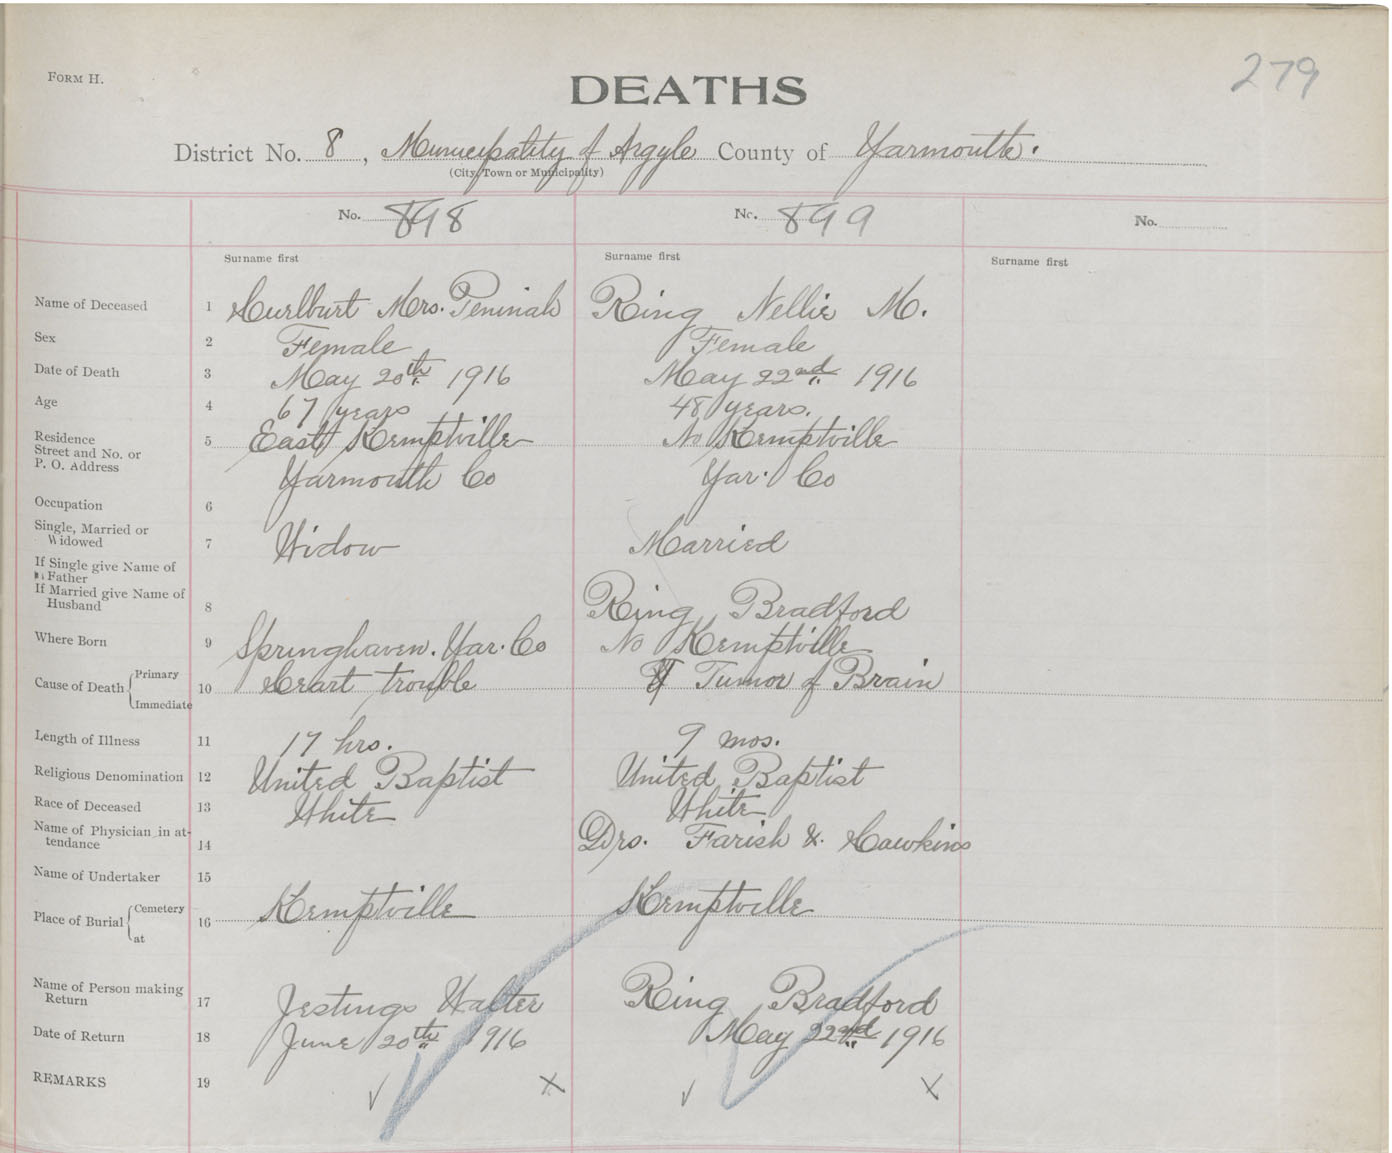 FORM H.
279
DEATHS
District No. 8, Municipality of Argyle County of Yarmouth.
(City, Town or Municipality)
No. 898 No. 899 No.
Surname first Surname first Surname first
Name of Deceased 1 Hurlburt Mrs. Peninah Ring Nellie M.
Sex 2 Female Female
Date of Death 3 May 20th 1916 May 22nd 1916
Age 4 67 years 48 years.
Residence
Street and No. or 5 East Kemptville No Kemptville
P. O. Address Yarmouth Co Yar. Co
Occupation 6
Single, Married or
Widowed 7 Widow Married
If Single give Name of
Father
If Married give Name of
Husband 8 Ring Bradford
Where Born 9 Springhaven. Yar. Co No Kemptville
Cause of Death Primary 10 Heart trouble Tumor of Brain
Immediate
Length of Illness 11 17 hrs. 9 mos.
Religious Denomination 12 United Baptist United Baptist
Race of Deceased 13 White White
Name of Physician in at-
tendance 14 Drs. Farish & Hawkins
Name of Undertaker 15
Place of Burial Cemetery 16 Kemptville Kemptville
at
Name of Person making
Return 17 Jestings Walter Ring Bradford
Date of Return 18 June 20th 1916 May 22nd 1916
REMARKS 19